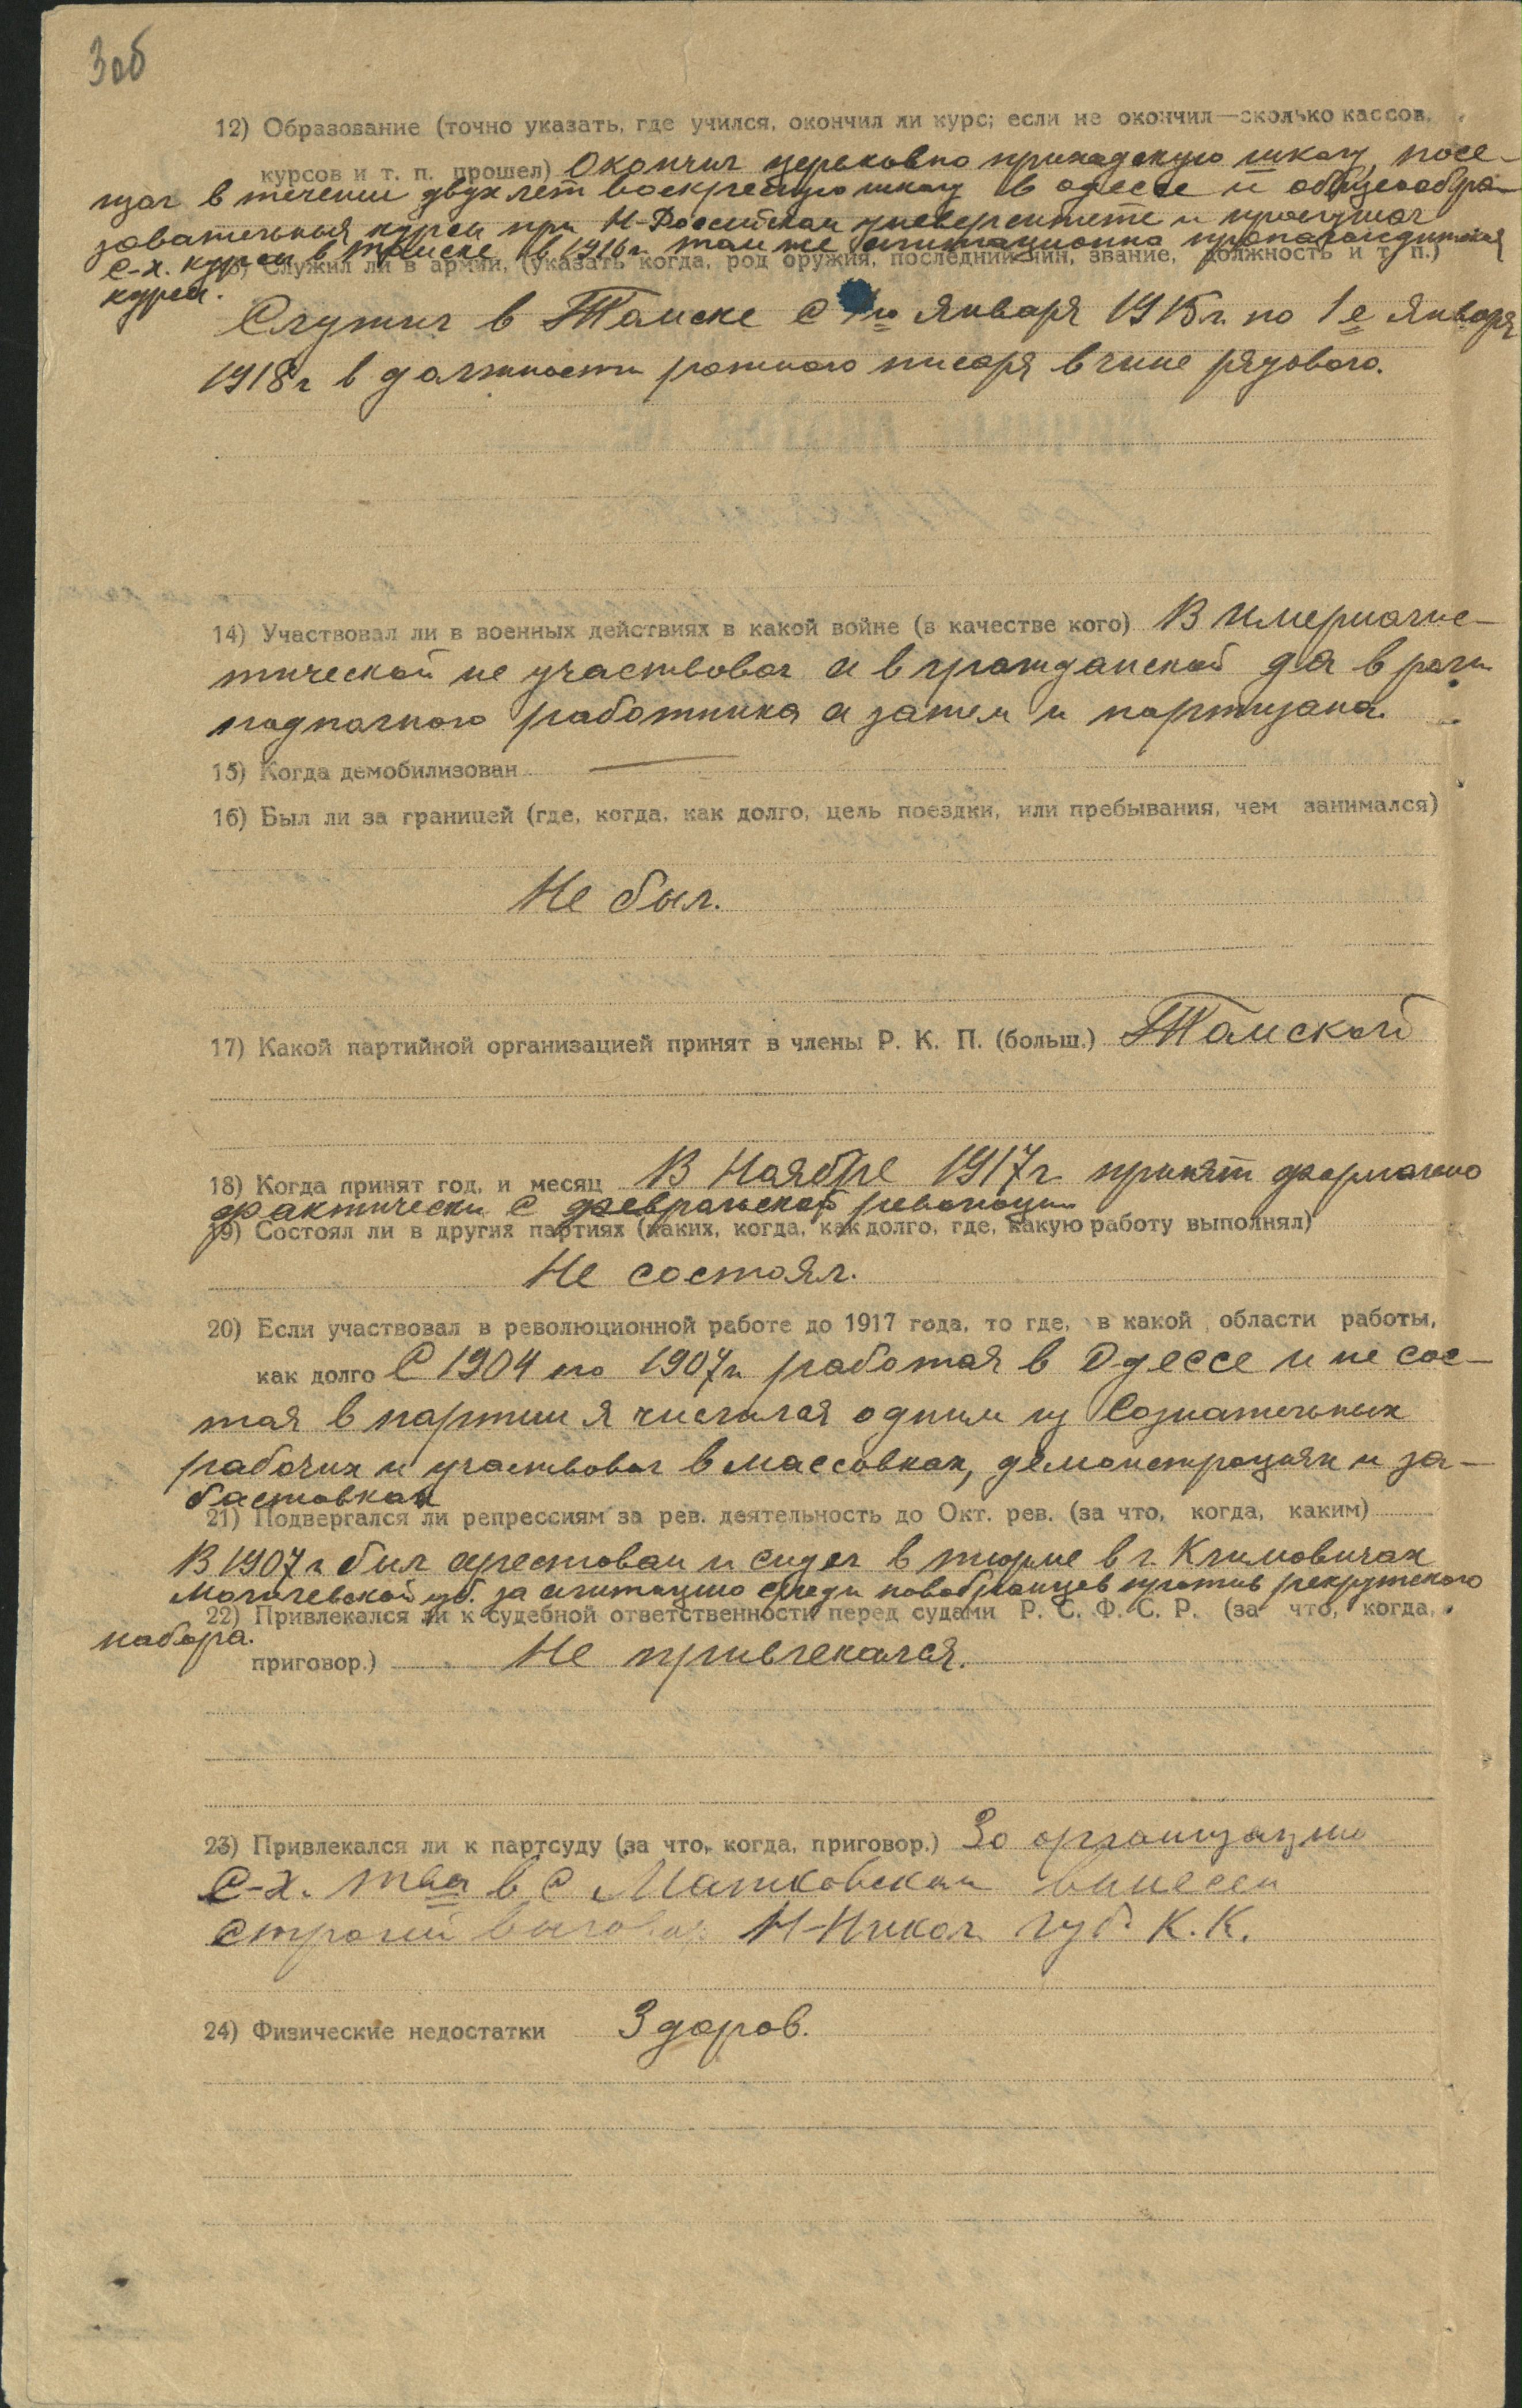 3об
12) Образование (точно указать, где учился, окончил ли курс; если не окончил—сколько кассов,
курсов и т. п. прошел) Окончил церковно приходскую школу, посе-
щал в течении двух лет воскресную школу в одессе и общеобра-
зовательныя курсы при Н-Российском университете и прослушал
С-х. курсы в Томске в 1916 г. там же агитационно пропагандитския
13) Служил ли в армии, (указать когда, род оружия, последний чин, звание, должность и т. п.)
курсы.
Служил в Томске с 1го Января 1915 г. по 1е Января
1918 г в должности ротного писаря в чине рядового.
14) Участвовал ли в военных действиях в какой войне (в качестве кого) В Имериалис-
тической не участвовал а в гражданской да в роли
подпольного работника а затем и партизана.
15) Когда демобилизован —
16) Был ли за границей (где, когда, как долго, цель поездки, или пребывания, чем занимался)
Не был.
17) Какой партийной организацией принят в члены Р. К. П. (больш.) Томской
18) Когда принят год, и месяц В Ноябре 1917 г. принят формально
фактически с февральской революции
19) Состоял ли в других партиях (каких, когда, как долго, где, какую работу выполнял)
Не состоял.
20) Если участвовал в революционной работе до 1917 года, то где, в какой области работы,
как долго С 1904 по 1907 г. работая в Одессе и не сос-
тоя в партии я числился одним из Сознательных
рабочих и участвовал в массовках, демонстрациях и за-
бастовках
21) Подвергался ли репрессиям за рев. деятельность до Окт. рев. (за что, когда, каким)
В 1907 г. был арестован и сидел в тюрме в г. Климовичах
Могилевской губ. за агитацию среди новобранцев против рекрутского
22) Привлекался ли к судебной ответственности перед судами Р. С. Ф. С. Р. (за что, когда,
набора.
приговор.) Не привлекался.
23) Привлекался ли к партсуду (за что, когда, приговор.) За организацию
С-х. тва в с Матковском вынесен
строгий выговор Н-Никол. губ. К. К.
24) Физические недостатки Здоров.